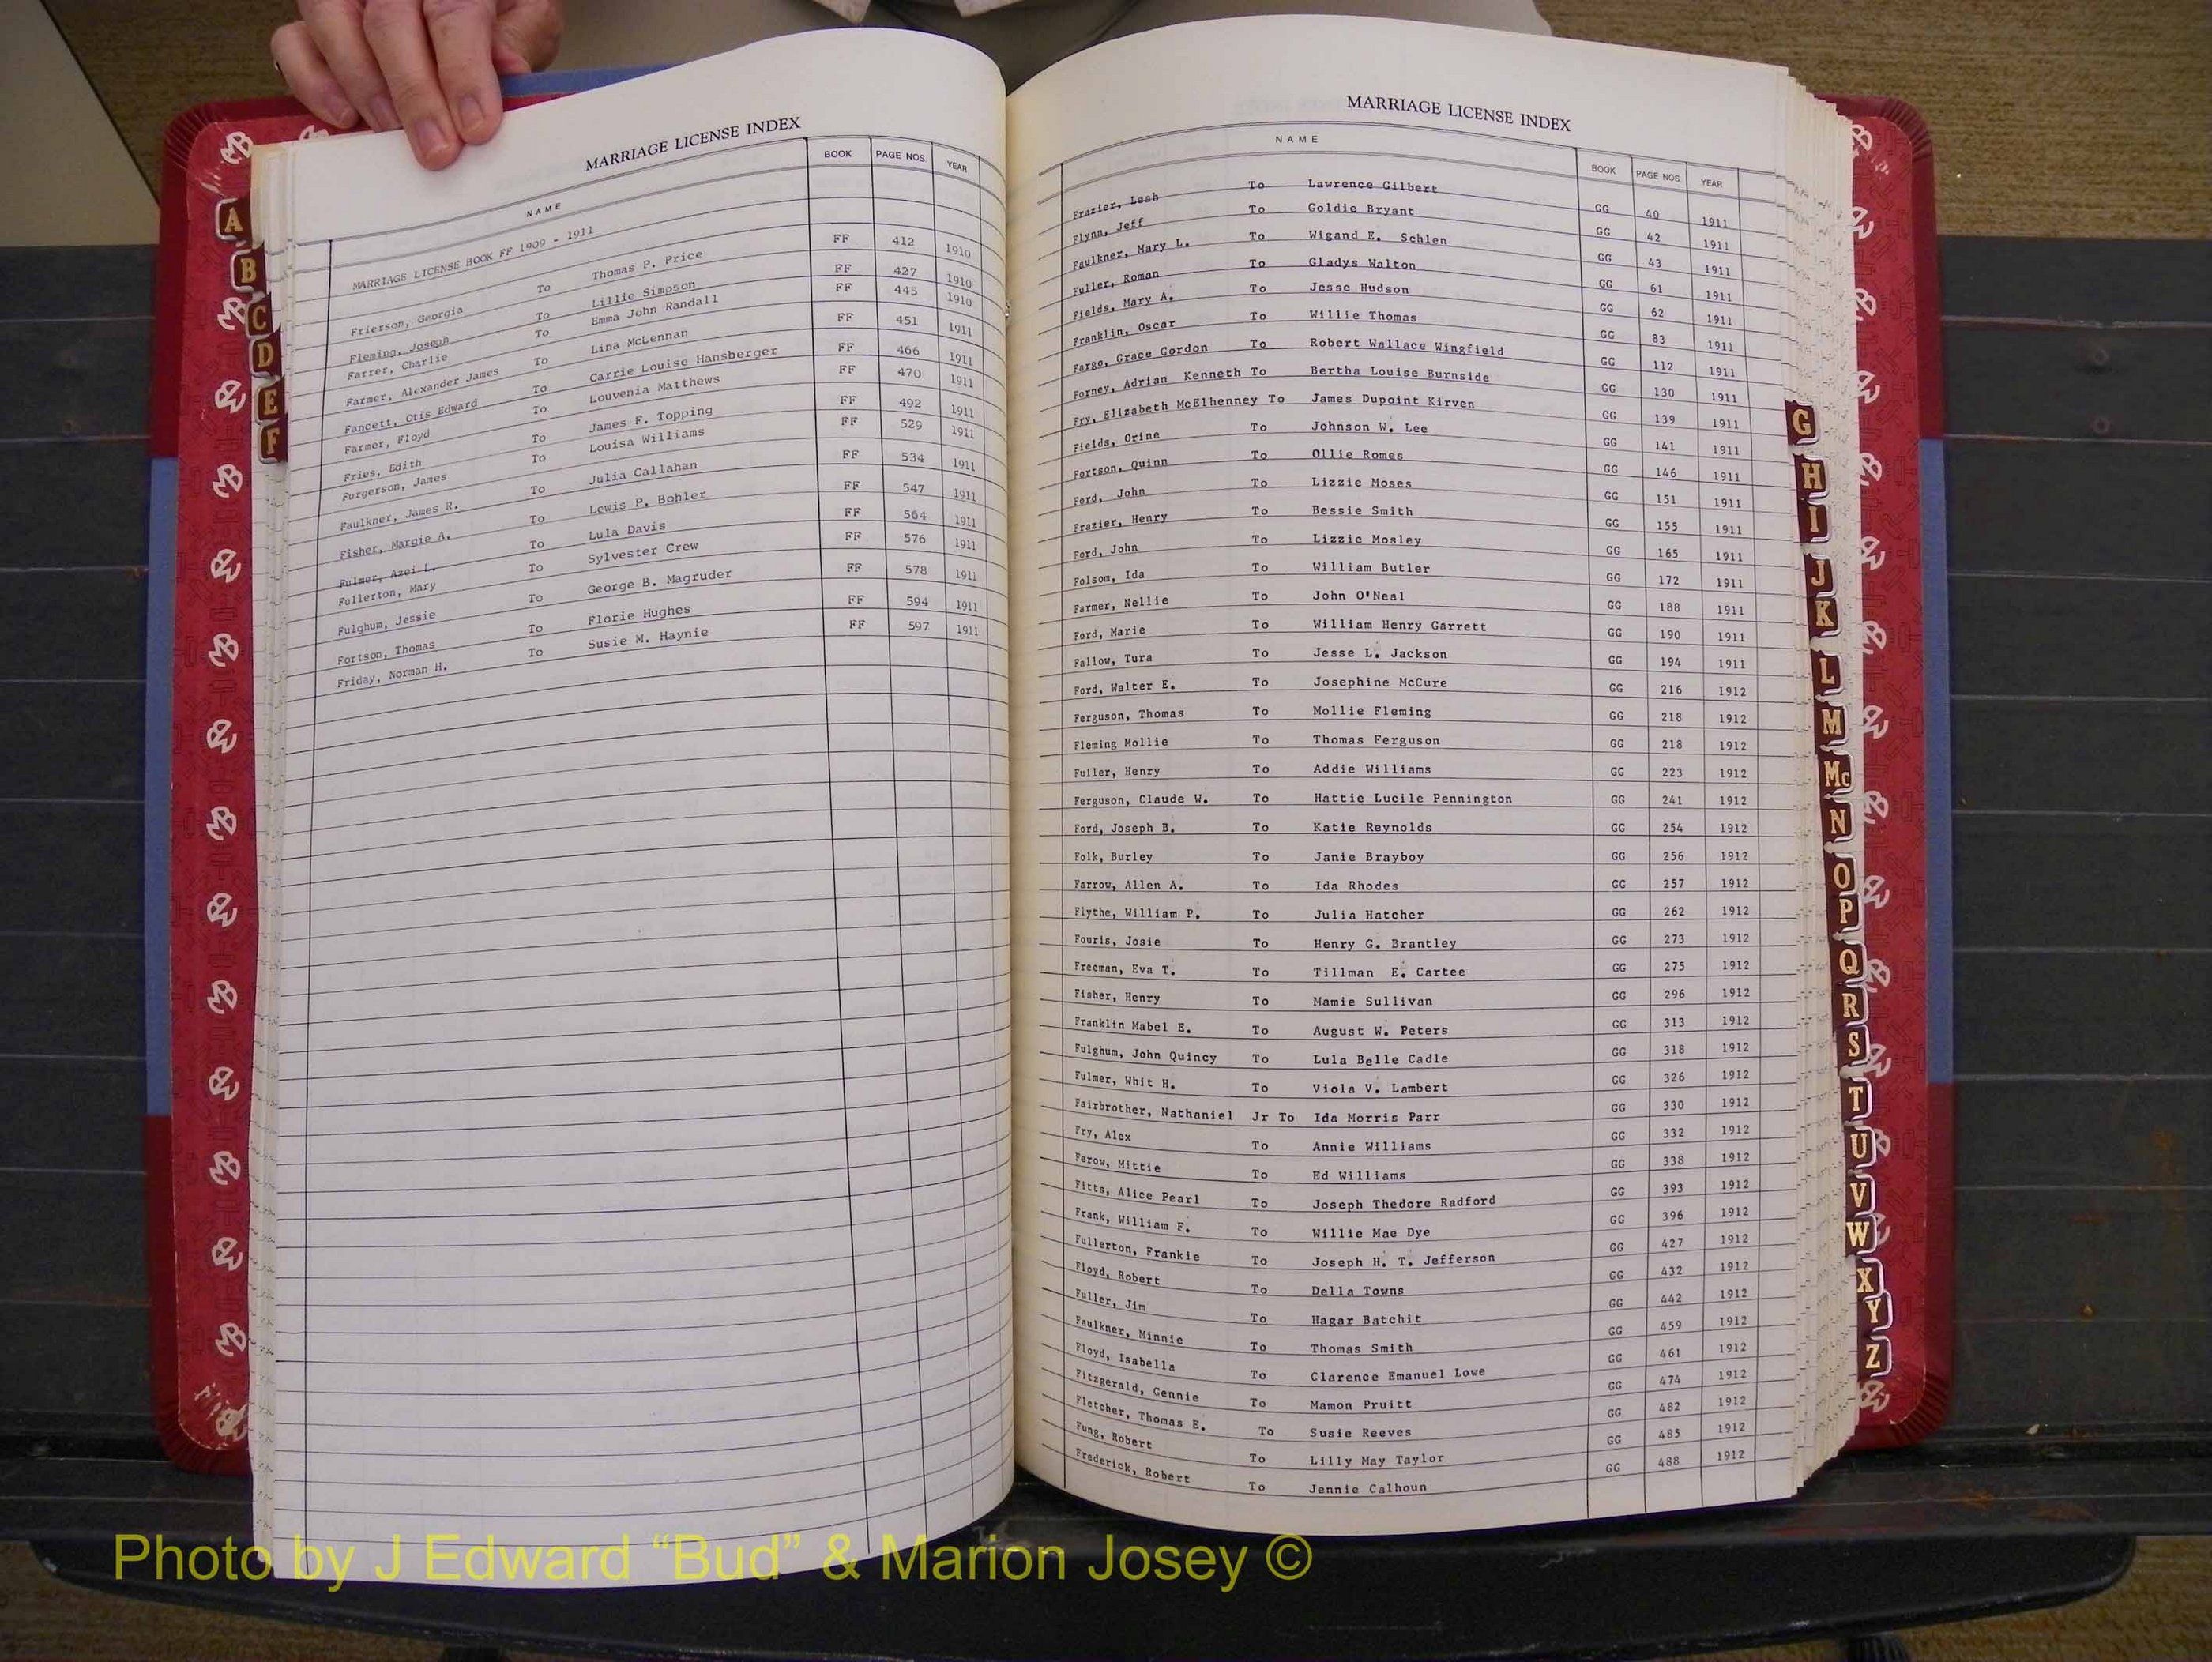 MARRIAGE LICENSE INDEX
NAME BOOK PAGE NOS. YEAR
MARRIAGE LICENSE BOOK FF 1909 - 1911
Frierson, Georgia To Thomas P. Price FF 412 1910
Fleming, Joseph To Lillie Simpson FF 427 1910
Farrer, Charlie To Emma John Randall FF 445 1910
Farmer, Alexander James To Lina McLennan FF 451 1911
Fancett, Otis Edward To Carrie Louise Hansberger FF 466 1911
Farmer, Floyd To Louvenia Matthews FF 470 1911
Fries, Edith To James F. Topping FF 492 1911
Furgerson, James To Louisa Williams FF 529 1911
Faulkner, James R. To Julia Callahan FF 534 1911
Fisher, Margie A. To Lewis P. Bohler FF 547 1911
Fulmer, Azei L. To Lula Davis FF 564 1911
Fullerton, Mary To Sylvester Crew FF 576 1911
Fulghum, Jessie To George B. Magruder FF 578 1911
Fortson, Thomas To Florie Hughes FF 594 1911
Friday, Norman H. To Susie M. Haynie FF 597 1911
MARRIAGE LICENSE INDEX
NAME BOOK PAGE NOS. YEAR
Frazier, Leah To Lawrence Gilbert GG 40 1911
Flynn, Jeff To Goldie Bryant GG 42 1911
Faulkner, Mary L. To Wigand E. Schlen GG 43 1911
Fuller, Roman To Gladys Walton GG 61 1911
Fields, Mary A. To Jesse Hudson GG 62 1911
Franklin, Oscar To Willie Thomas GG 83 1911
Fargo, Grace Gordon To Robert Wallace Wingfield GG 112 1911
Forney, Adrian Kenneth To Bertha Louise Burnside GG 130 1911
Fry, Elizabeth McElhenney To James Dupoint Kirven GG 139 1911
Fields, Orine To Johnson W. Lee GG 141 1911
Fortson, Quinn To Ollie Romes GG 146 1911
Ford, John To Lizzie Moses GG 151 1911
Frazier, Henry To Bessie Smith GG 155 1911
Ford, John To Lizzie Mosley GG 165 1911
Folsom, Ida To William Butler GG 172 1911
Farmer, Nellie To John O'Neal GG 188 1911
Ford, Marie To William Henry Garrett GG 190 1911
Fallow, Tura To Jesse L. Jackson GG 194 1911
Ford, Walter E. To Josephine McCure GG 216 1912
Ferguson, Thomas To Mollie Fleming GG 218 1912
Fleming Mollie To Thomas Ferguson GG 218 1912
Fuller, Henry To Addie Williams GG 223 1912
Ferguson, Claude W. To Hattie Lucile Pennington GG 241 1912
Ford, Joseph B. To Katie Reynolds GG 254 1912
Folk, Burley To Janie Brayboy GG 256 1912
Farrow, Allen A. To Ida Rhodes GG 257 1912
Flythe, William P. To Julia Hatcher GG 262 1912
Fouris, Josie To Henry G. Brantley GG 273 1912
Freeman, Eva T. To Tillman E. Cartee GG 275 1912
Fisher, Henry To Mamie Sullivan GG 296 1912
Franklin Mabel E. To August W. Peters GG 313 1912
Fulghum, John Quincy To Lula Belle Cadle GG 318 1912
Fulmer, Whit H. To Viola V. Lambert GG 326 1912
Fairbrother, Nathaniel Jr To Ida Morris Parr GG 330 1912
Fry, Alex To Annie Williams GG 332 1912
Ferow, Mittie To Ed Williams GG 338 1912
Fitts, Alice Pearl To Joseph Thedore Radford GG 393 1912
Frank, William F. To Willie Mae Dye GG 396 1912
Fullerton, Frankie To Joseph H. T. Jefferson GG 427 1912
Floyd, Robert To Della Towns GG 432 1912
Fuller, Jim To Hagar Batchit GG 442 1912
Faulkner, Minnie To Thomas Smith GG 459 1912
Floyd, Isabella To Clarence Emanuel Lowe GG 461 1912
Fitzgerald, Gennie To Mamon Pruitt GG 474 1912
Fletcher, Thomas E. To Susie Reeves GG 482 1912
Fung, Robert To Lilly May Taylor GG 485 1912
Frederick, Robert To Jennie Calhoun GG 488 1912
A
B
C
D
E
F
G
H
I
J
K
L
M
Mc
N
O
P
Q
R
S
T
U
V
W
X
Y
Z
Photo by J Edward “Bud” & Marion Josey ©